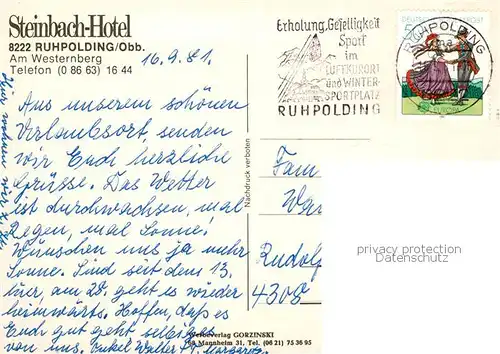 Steinbach-Hotel
8222 RUHPOLDING/Obb.
Am Westernberg
Telefon (0 86 63) 16 44
16.9.81.
Aus unserem schönen
Urlaubsort senden
wir Euch herzliche
Grüsse. Das Wetter
ist durchwachsen, mal
Regen, mal Sonne!
Wünschen uns ja mehr
Sonne. Sind seit dem 13.
hier, am 28. geht es wieder
heimwärts. Hoffen, daß es
Euch gut geht selbiges
von uns. Onkel Walter
Nachdruck verboten
GORZINSKI
Mannheim 31, Tel. (06 21) 75 36 95
Erholung, Geselligkeit
Sport
im
LUFTKURORT
und WINTER-
SPORTPLATZ
RUHPOLDING
DEUTSCHE
RUHPOLDING
Fam
Rudolf
4300
privacy protection
Datenschutz